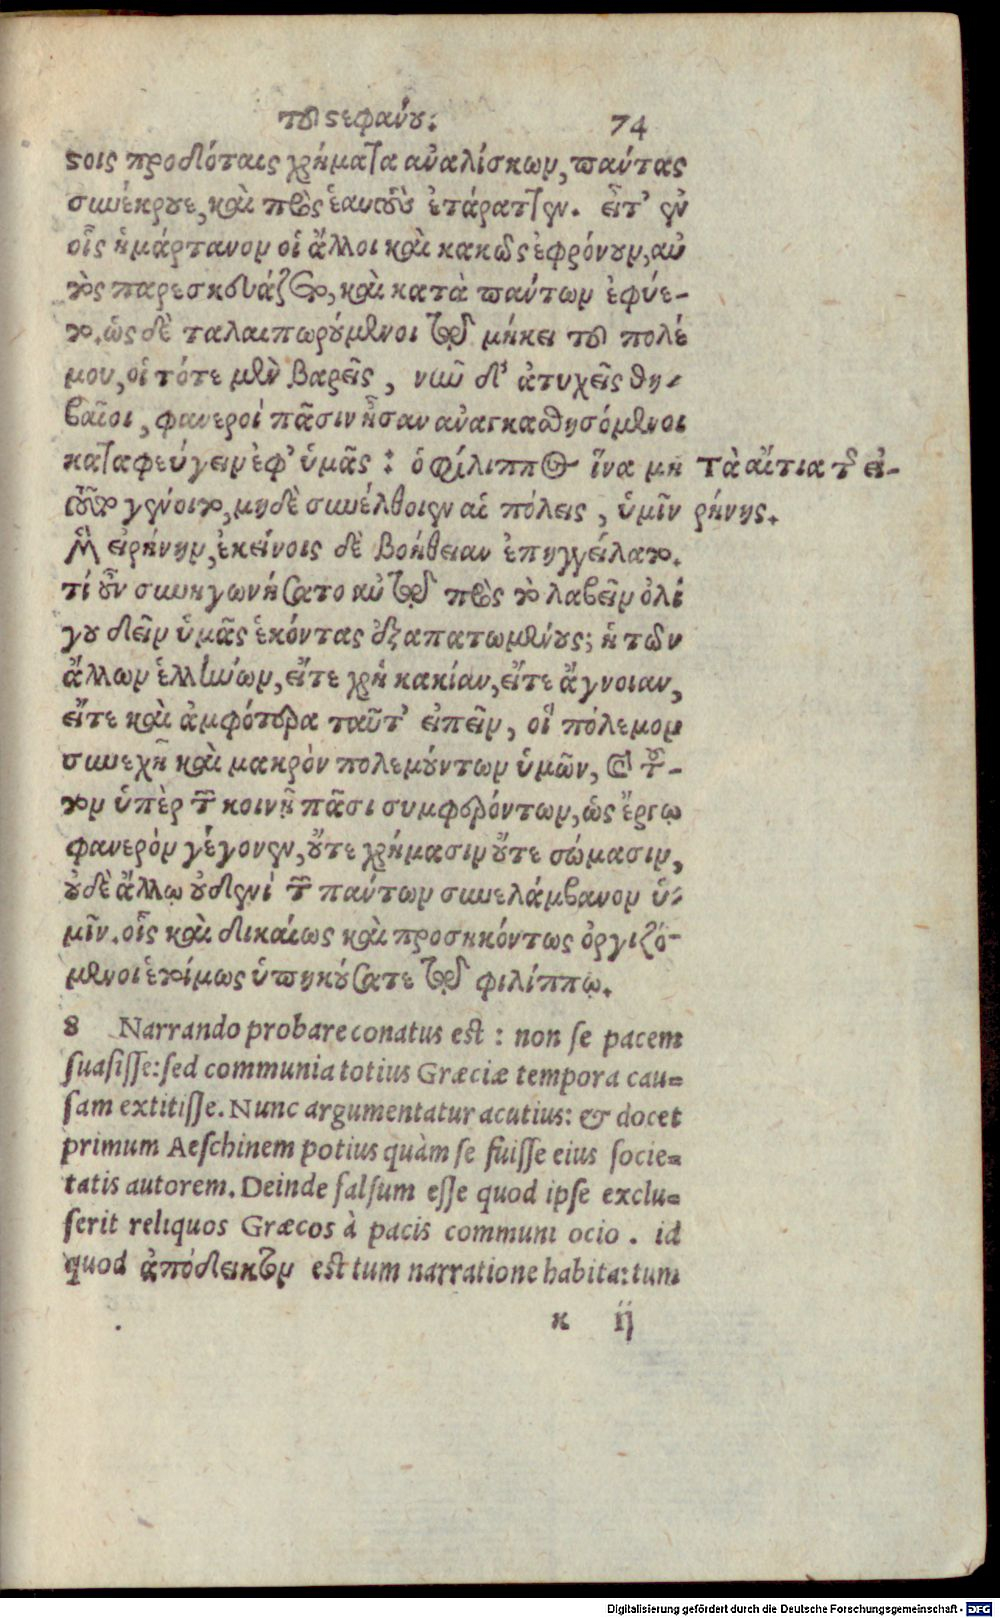 τοῦ στεφάνου. 74
στοις προδόταις χρήματα ἀναλίσκων, πάντας
συνέκρουε, καὶ πρὸς ἑαυτοὺς ἐτάραττεν. εἶτ' ἐν
οἷς ἡμάρτανον οἱ ἄλλοι καὶ κακῶς ἐφρόνουν, αὐ
τὸς παρεσκευάζετο, καὶ κατὰ πάντων ἐφύε-
το. ὡς δὲ ταλαιπωρούμενοι τῷ μήκει τοῦ πολέ
μου, οἱ τότε μὲν βαρεῖς, νῦν δ' ἀτυχεῖς θη-
βαῖοι, φανεροὶ πᾶσιν ἦσαν ἀναγκασθησόμενοι
καταφεύγειν ἐφ' ὑμᾶς: ὁ φίλιππος ἵνα μὴ
τοῦτο γένοιτο, μηδὲ συνέλθοιεν αἱ πόλεις, ὑμῖν
μὲν εἰρήνην, ἐκείνοις δὲ βοήθειαν ἐπηγγείλατο.
τί οὖν συνηγωνήσατο αὐτῷ πρὸς τὸ λαβεῖν ὀλί
γου δεῖν ὑμᾶς ἑκόντας ἐξαπατωμένους; ἡ τῶν
ἄλλων ἑλλήνων, εἴτε χρὴ κακίαν, εἴτε ἄγνοιαν,
εἴτε καὶ ἀμφότερα ταῦτ' εἰπεῖν, οἳ πόλεμον
συνεχῆ καὶ μακρὸν πολεμούντων ὑμῶν, καὶ τοῦ-
τον ὑπὲρ τῶν κοινῇ πᾶσι συμφερόντων, ὡς ἔργῳ
φανερὸν γέγονεν, οὔτε χρήμασιν οὔτε σώμασιν,
οὐδὲ ἄλλῳ οὐδενὶ τῶν πάντων συνελάμβανον ὑ-
μῖν. οἷς καὶ δικαίως καὶ προσηκόντως ὀργιζό-
μενοι ἑτοίμως ὑπηκούσατε τῷ φιλίππῳ.
τὰ αἴτια τῆς εἰ-
ρήνης.
8 Narrando probare conatus est: non se pacem
suasisse: sed communia totius Græciæ tempora cau=
sam extitisse. Nunc argumentatur acutius: & docet
primum Aeschinem potius quàm se fuisse eius socie=
tatis autorem. Deinde falsum esse quod ipse exclu=
serit reliquos Græcos à pacis communi ocio. id
quod ἀπόδεικτον est tum narratione habita: tum
κ ij
Digitalisierung gefördert durch die Deutsche Forschungsgemeinschaft - DFG